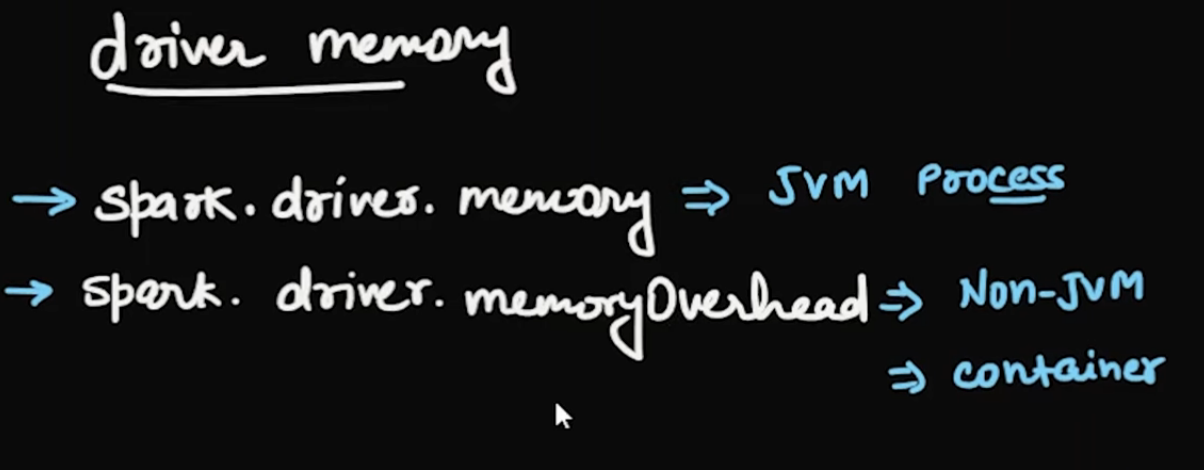 driver memory
→ spark. driver. memory ⇒ JVM Process
→ spark. driver. memoryOverhead ⇒ Non-JVM
⇒ container